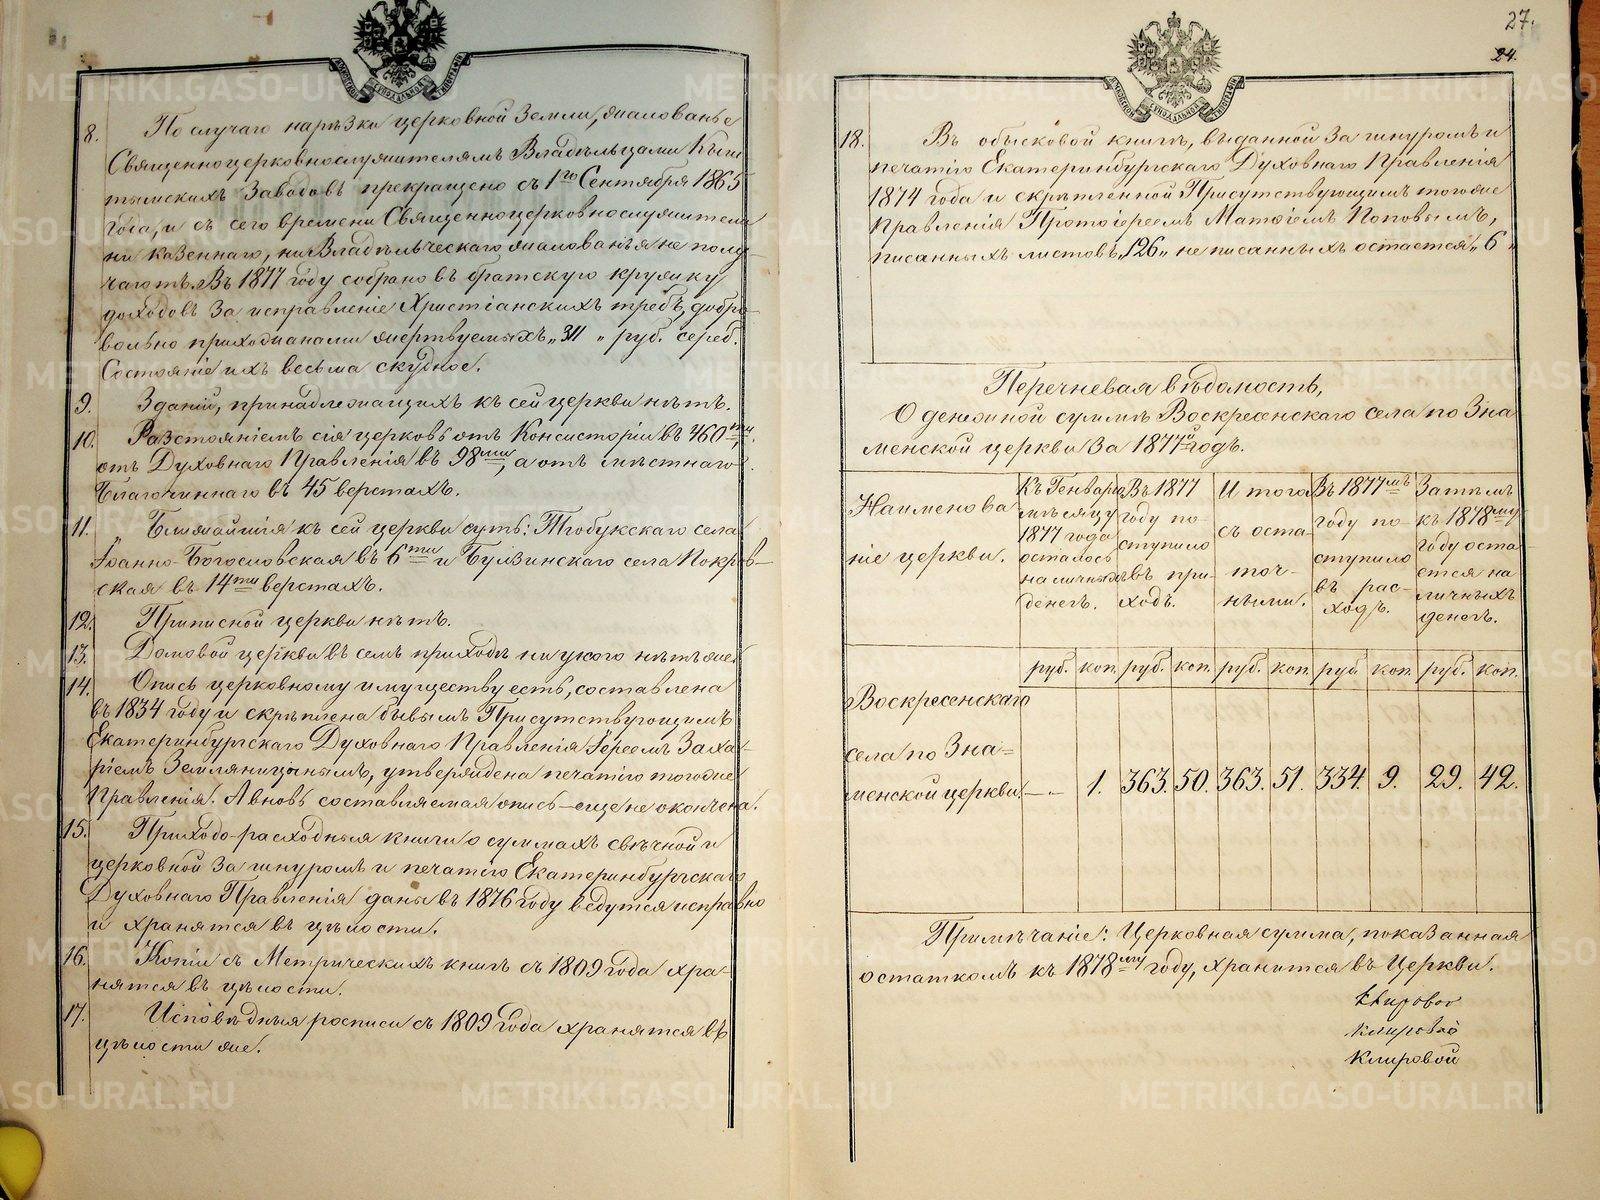 8. По случаю нарѣзки церковной земли, жалованье
Священноцерковнослужителямъ Владѣльцами Кыш
тымскихъ Заводовъ прекращено съ 1го Сентября 1865
года, и съ сего времени Священноцерковнослужители
ни казеннаго, ни Владѣльческаго жалованья не полу
чаютъ. Въ 1877 году собрано въ братскую кружку
доходовъ за исправленіе Христіанскихъ требъ, добро
вольно прихожанами жертвуемыхъ „311„ руб. сереб.
Состояніе ихъ весьма скудное.
9. Зданій, принадлежащихъ къ сей церкви нѣтъ.
10. Разстояніемъ сія церковь отъ Консисторіи въ 460ти,
отъ Духовнаго Правленія въ 98ми, а отъ мѣстнаго
Благочиннаго въ 45 верстахъ.
11. Ближайшія къ сей церкви суть: Тюбукскаго села
Іоанно-Богословская въ 6ти и Булзинскаго села Покров-
ская въ 14ти верстахъ.
12. Приписной церкви нѣтъ.
13. Домовой церкви въ семъ приходѣ ни у кого нѣтъ же.
14. Опись церковному имуществу есть, составлена
въ 1834 году и скрѣплена бывымъ Присутствующимъ
Екатеринбургскаго Духовнаго Правленія Іереемъ Заха-
ріемъ Земляницынымъ, утверждена печатію тогоже
Правленія. А вновь составляемая опись еще не окончена.
15. Приходо-расходныя книги о суммахъ свѣчной и
церковной за шнуромъ и печатію Екатеринбургскаго
Духовнаго Правленія даны въ 1876 году ведутся исправно
и хранятся въ цѣлости.
16. Копіи съ Метрическихъ книгъ съ 1809 года хра-
нятся въ цѣлости.
17. Исповѣдныя росписи съ 1809 года хранятся въ
цѣлости же.
27.
24.
18. Въ обысковой книгѣ, выданной за шнуромъ и
печатію Екатеринбургскаго Духовнаго Правленія
1874 года и скрѣпленной Присутствующимъ тогоже
Правленія Протоіереемъ Матѳіемъ Поповымъ,
писанныхъ листовъ „126„ неписанныхъ остается „6„
Перечневая вѣдомость,
О денежной суммѣ Воскресенскаго села по Зна
менской церкви за 1877й годъ.
Наименова
ніе церкви.
Къ Генварю
мѣсяцу
1877 года
осталось
наличныхъ
денегъ.
Въ 1877
году по-
ступило
въ при-
ходъ.
Итого
съ оста-
точ-
ными.
Въ 1877мъ
году по-
ступило
въ рас-
ходъ.
Затѣмъ
къ 1878му
году оста-
ется на
личныхъ
денегъ.
руб. коп. руб. коп. руб. коп. руб. коп. руб. коп.
Воскресенскаго
села по Зна=
менской церкви. — 1. 363. 50. 363. 51. 334. 9. 29. 42.
Примѣчаніе: Церковная сумма, показанная
остаткомъ къ 1878му году, хранится въ Церкви.
Клировой
клировой
Клировой
METRIKI.GASO-URAL.RU